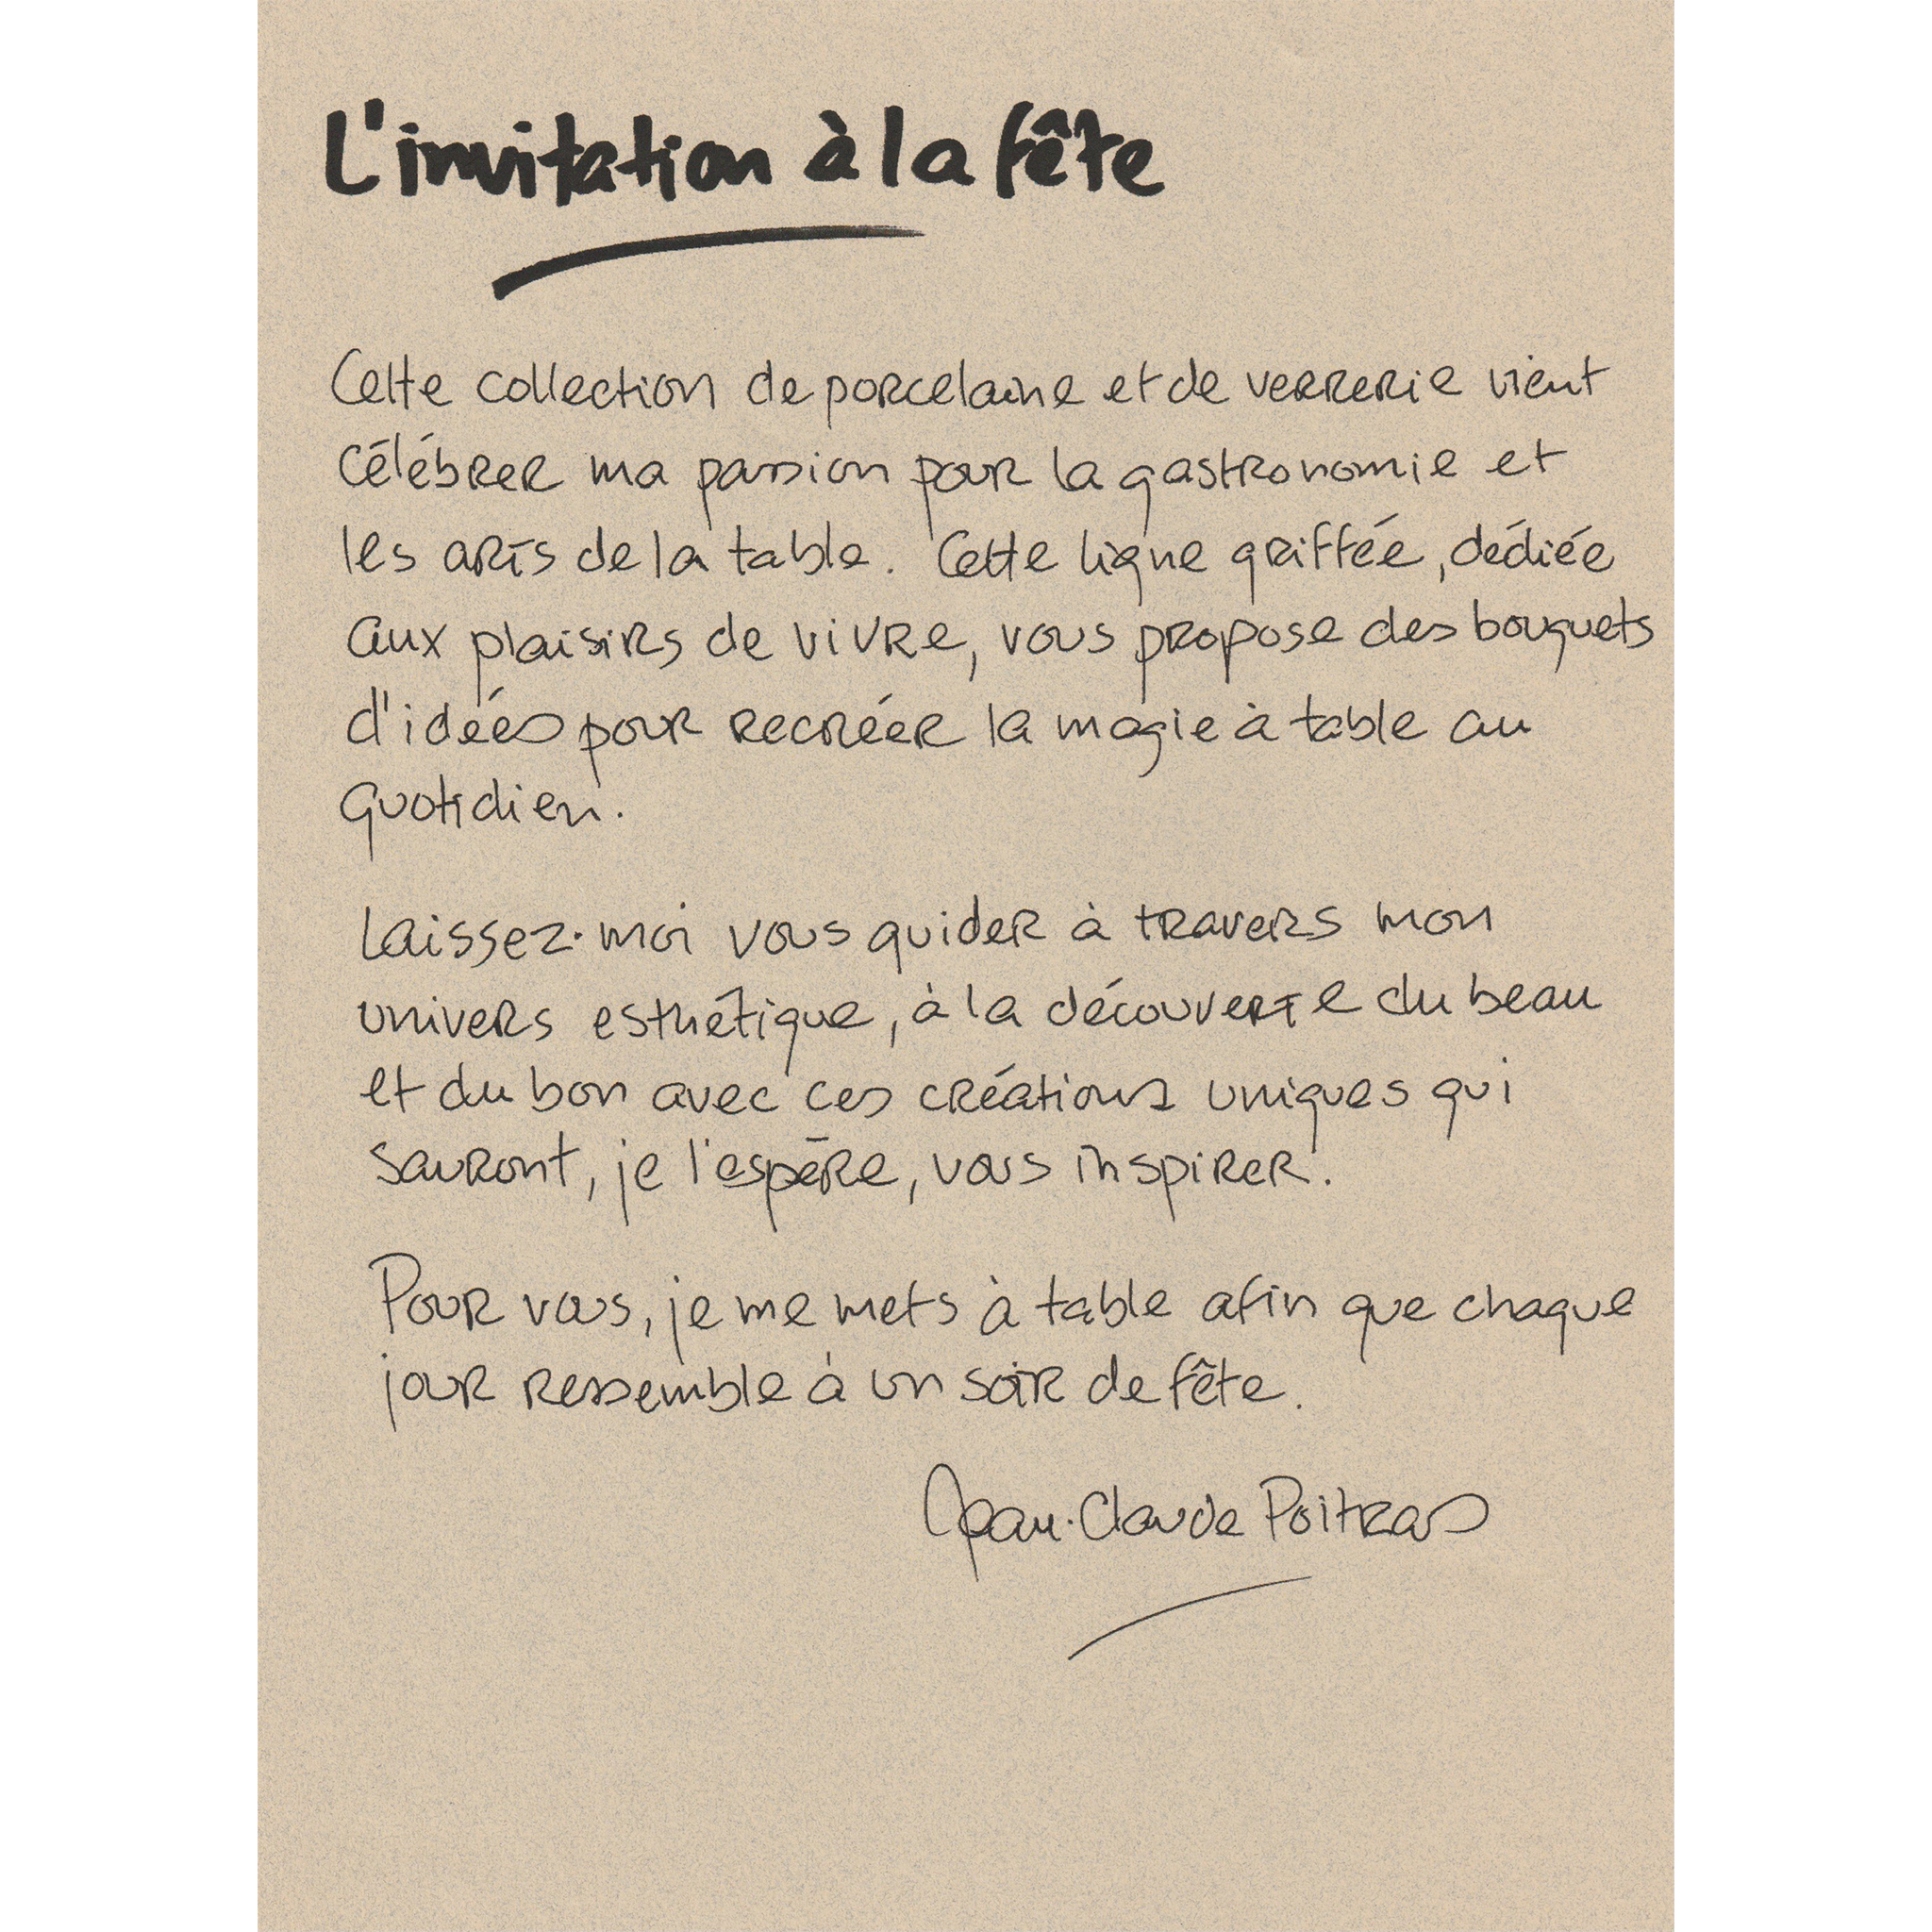 L'invitation à la fête
Cette collection de porcelaine et de verrerie vient
célébrer ma passion pour la gastronomie et
les arts de la table. Cette ligne griffée, dédiée
aux plaisirs de vivre, vous propose des bouquets
d'idées pour recréer la magie à table au
quotidien.
Laissez-moi vous guider à travers mon
univers esthétique, à la découverte du beau
et du bon avec ces créations uniques qui
sauront, je l'espère, vous inspirer.
Pour vous, je me mets à table afin que chaque
jour ressemble à un soir de fête.
Jean-Claude Poitras